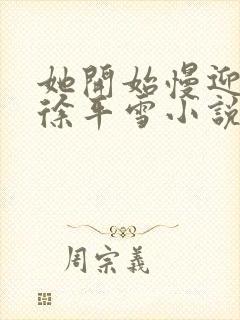 她開始慢迎
徐平雪小說
周宗義